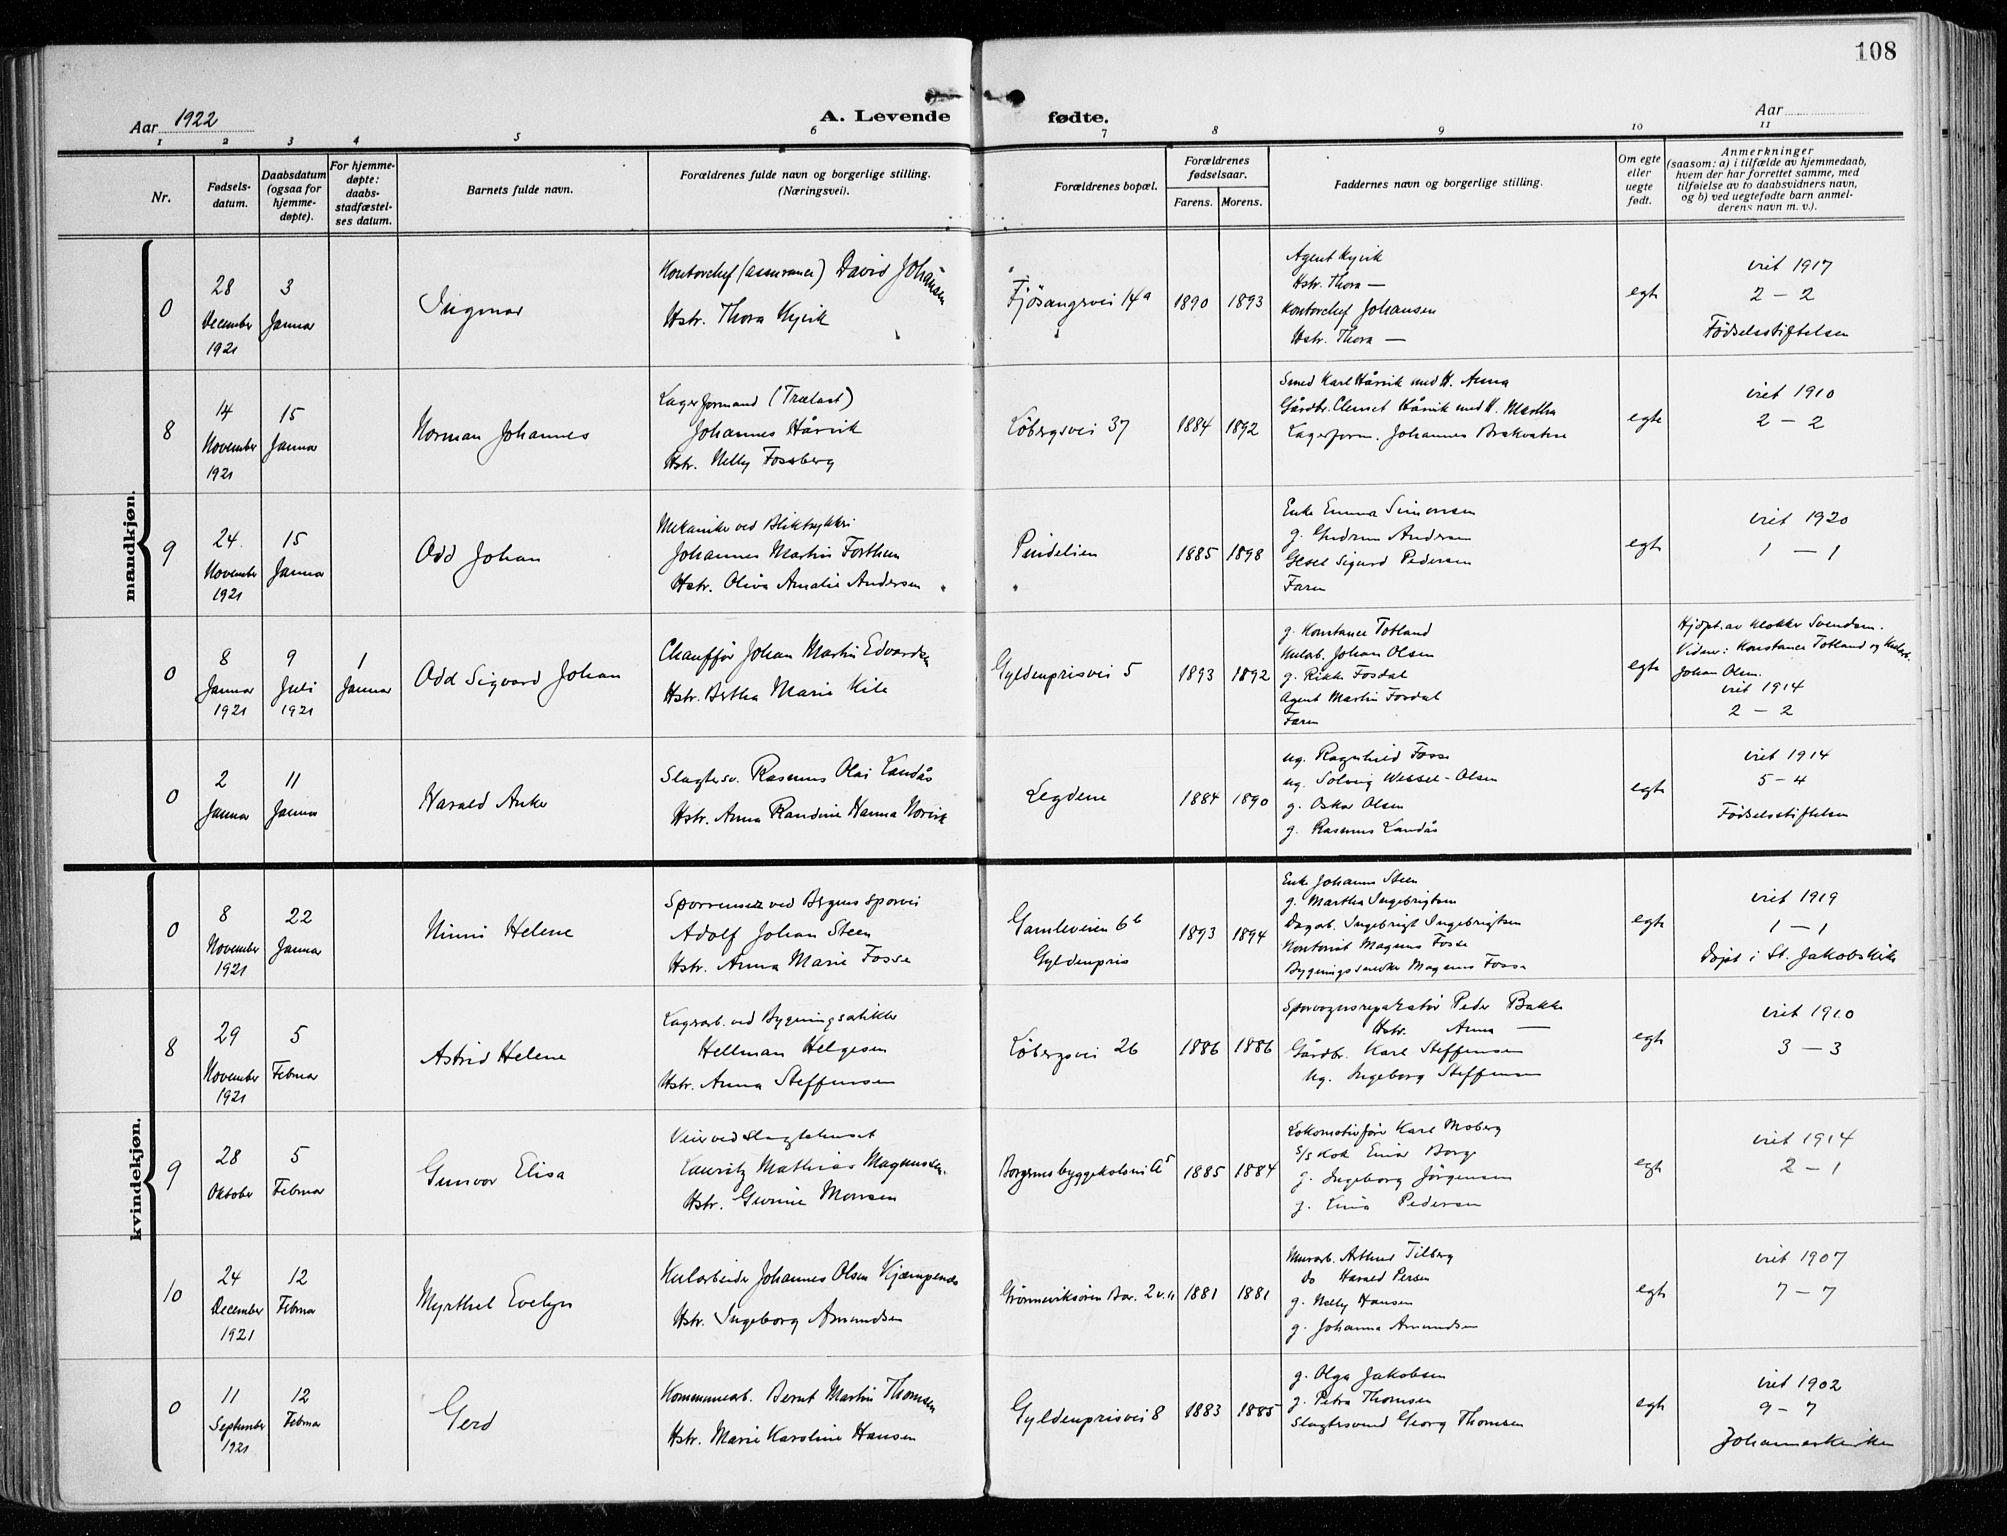 108
Aar 1922
A. Levende fødte.
Aar
1 2 3 4 5 6 7 8 9 10 11
Nr.
Fødsels-
datum.
Daabsdatum
(ogsaa for
hjemme-
døpte).
For hjemme-
døpte:
daabs-
stadfæstel-
ses datum.
Barnets fulde navn.
Forældrenes fulde navn og borgerlige stilling.
(Næringsvei).
Forældrenes bopæl.
Forældrenes
fødselsaar.
Farens. Morens.
Faddernes navn og borgerlige stilling.
Om egte
eller
uegte
født.
Anmerkninger
(saasom: a) i tilfælde av hjemmedaab,
hvem der har forrettet samme, med
tilføielse av to daabsvidners navn,
og b) ved uegtefødte barn anmel-
derens navn m. v.).
mandkjøn.
0
28
December
1921
3
Januar
Ingmar
Kontorchef (assurance) David Johansen
Hstr. Thora Kyvik
Fjøsangsvei 14a
1890
1893
Agent Kyvik
Hstr. Thora —
Kontorchef Johansen
Hstr. Thora —
egte
viet 1917
2 – 2
Fødselsstiftelsen
8
14
November
1921
15
Januar
Norman Johannes
Lagerformand (Trælast)
Johannes Hårvik
Hstr. Nelly Fossberg
Løbergsvei 37
1884
1892
Smed Karl Hårvik med H. Anna
Gårdbr. Clemet Hårvik med H. Martha
Lagerform. Johannes
egte
viet 1910
2 – 2
9
24.
November
1921
15
Januar
Odd Johan
Mekaniker ved
Johannes Martin Forthun
Hstr. Oliva Amalie Andersen
Pindelien
1885
1898
Enke Emma Simonsen
g. Gudrun Andersen
Gesel Sigurd Pedersen
Faren
egte
viet 1920
1 – 1
0
8
Januar
1921
9
Juli
1921
1
Januar
Odd Sigvard Johan
Chauffør Johan Martin Edvardsen
Hstr. Bertha Marie Kile
Gyldenprisvei 5
1893
1892
g. Konstance Totland
Kularb. Johan Olsen
g. Rikke Fosdal
Agent Martin Fosdal
Faren
egte
Hjdpt. av klokker Svendsen.
Vidner: Konstance Totland og Kularb.
Johan Olsen.
viet 1914
2 – 2
0
2
Januar
11
Januar
Harald Anker
Slagtersv. Rasmus Olai Landås
Hstr. Anna Randine Hanna Norvik
Legdene
1884
1890
ug. Ragnhild Fosse
ug. Solveig Wessel-Olsen
g. Oskar Olsen
g. Rasmus Landås
egte
viet 1914
5 – 4
Fødselsstiftelsen
kvindekjøn.
0
8
November
1921
22
Januar
Ninni Helene
Sporrenser ved Bergens sporvei
Adolf Johan Steen
Hstr. Anna Marie Fosse
Gamleveien 6b
Gyldenpris
1893
1894
Enke Johanna Steen
g. Martha Ingebrigtsen
Dagarb. Ingebrigt Ingebrigtsen
Kontorist Magnus Fosse
Bygningssnedker Magnus Fosse
egte
viet 1919
1 – 1
Døpt i St. Jakobs Kirke
8
29
November
1921
5
Februar
Astrid Helene
Lagerarb. ved Bygningsartikler
Hellman Helgesen
Hstr. Anna Steffensen
Løbergsvei 26
1886
1886
Sporvognsreparatør Peder Bakke
Hstr. Anna —
Gårdbr. Karl Steffensen
Ug. Ingeborg Steffensen
egte
viet 1910
3 – 3
9
28
Oktober
5
Februar
Gunvor Elisa
Veier ved Slagtehuset
Lauritz Mathias Magnussen.
Hstr. Gurine Monsen
1885
1884
Lokomotivfører Karl Moberg
S/s kok Einar Borge
g. Ingeborg Jørgensen
g. Lina Pedersen
egte
viet 1914
2 – 1
10
24
December
1921
12
Februar
Myrthel Evelyn
Kularbeider Johannes Olsen Kjæmpenes
Hstr. Ingeborg Amundsen
Grønneviksøren Bar. 2 v. 11
1881
1881
Murarb. Arthur Tilberg
Do Harald Persen
g. Nelly Hansen
g. Johanna Amundsen
egte
viet 1907
7 – 7
0
11
September
1921
12
Februar
Gerd
Kommunearb. Bernt Martin Thomsen
Hstr. Marie Karoline Hansen
Gyldenprisvei 8
1883
1885
g. Olga Jakobsen
g. Petra Thomsen
Slagtersvend Georg Thomsen
egte
viet 1902
9 – 7
Johanneskirken